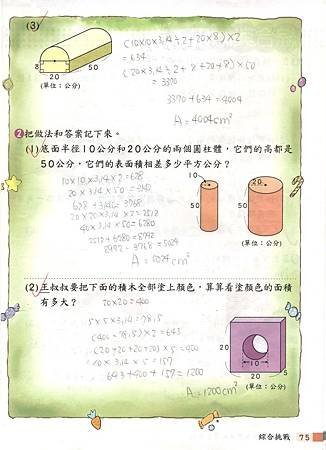 (3)
8
20
50
(單位：公分)
(10×10×3.14÷2+20×8)×2
=634
(20×3.14÷2+8+20+8)×50
=3370
3370+634=4004
A=4004cm²
2 把做法和答案記下來。
(1) 底面半徑10公分和20公分的兩個圓柱體，它們的高都是
50公分，它們的表面積相差多少平方公分？
10×10×3.14×2=628
20×3.14×50=3140
628+3140=3768
20×20×3.14×2=2512
40×3.14×50=6280
2512+6280=8792
8792-3768=5024
A=5024cm²
10
50
20
50
(單位：公分)
(2) 王叔叔要把下面的積木全部塗上顏色，算算看塗顏色的面積
有多大？
20×20=400
5×5×3.14=78.5
(400-78.5)×2=643
(20+20+20+20)×5=400
10×3.14×5=157
643+400+157=1200
A=1200cm²
20
10
20
5
(單位：公分)
綜合挑戰 75